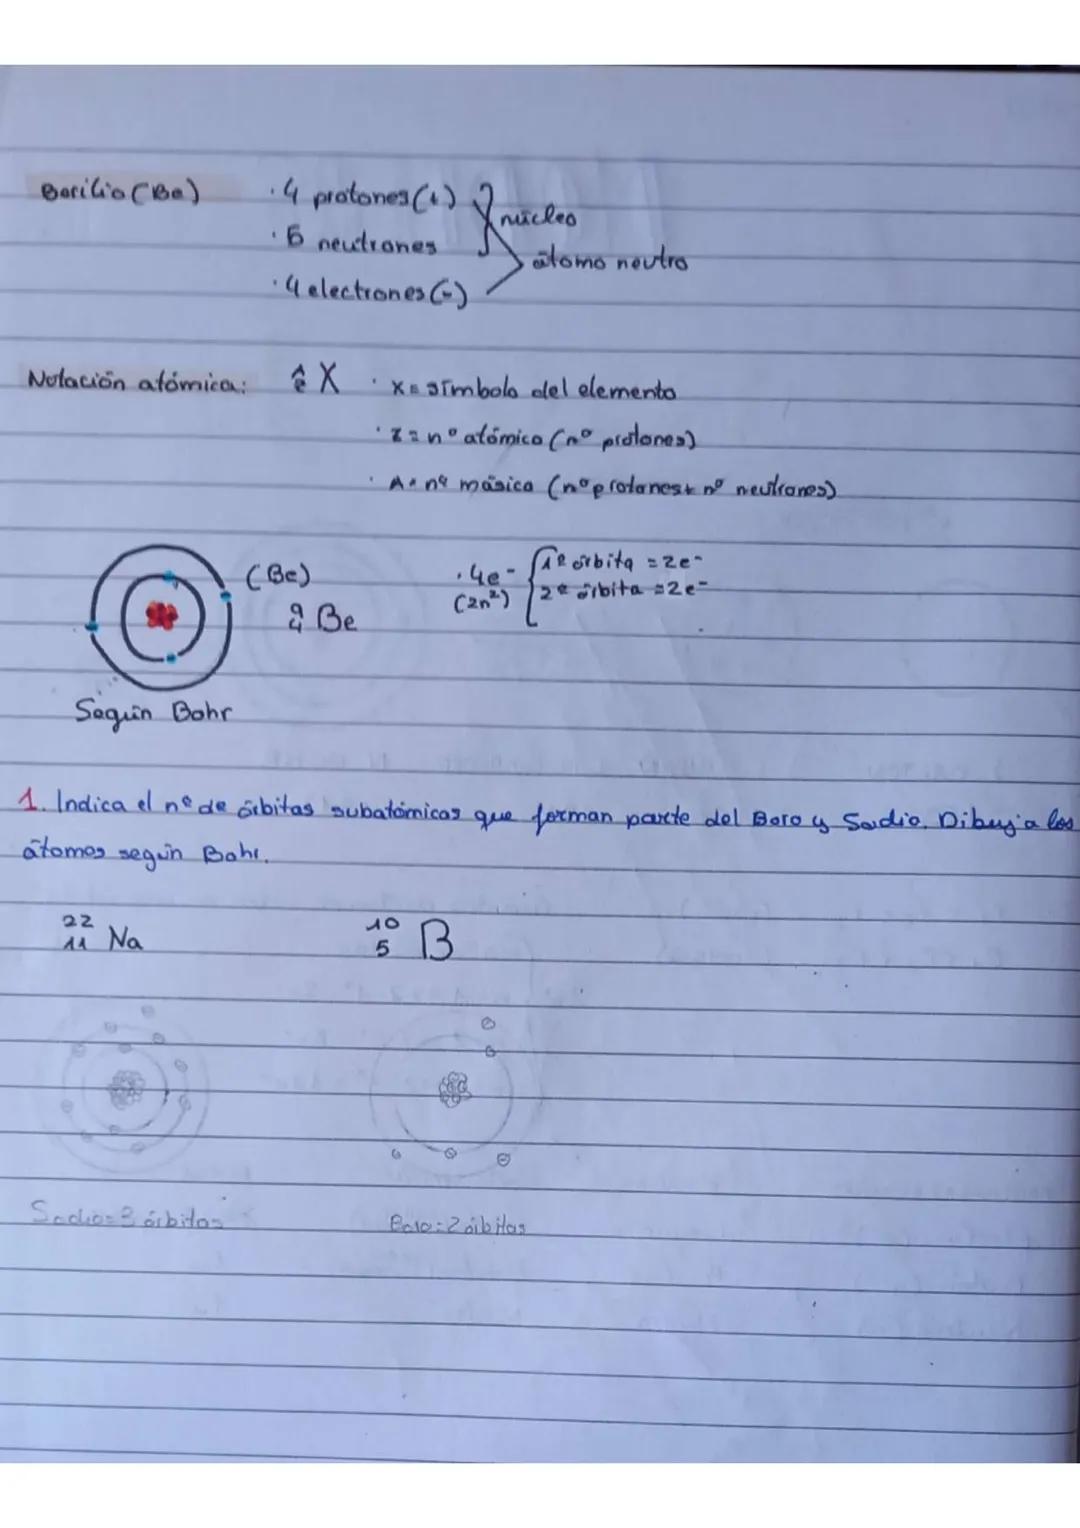 Berilio (Be) · 4 protones (+)
núcleo
· 5 neutrones
átomo neutro
· 4 electrones (-)
Notación atómica: A Z X · X = símbolo del elemento
· Z = nº atómico (nº protones)
· A = nº másica (nº protones + nº neutrones)
(Be) · 4e- 1ª órbita = 2e-
9 4 Be (2n²) 2ª órbita = 2e-
Según Bohr
1. Indica el nº de órbitas subatómicas que forman parte del Boro y Sodio. Dibuja los
átomos según Bohr.
22 11 Na 10 5 B
Sodio = 3 órbitas Boro = 2 órbitas